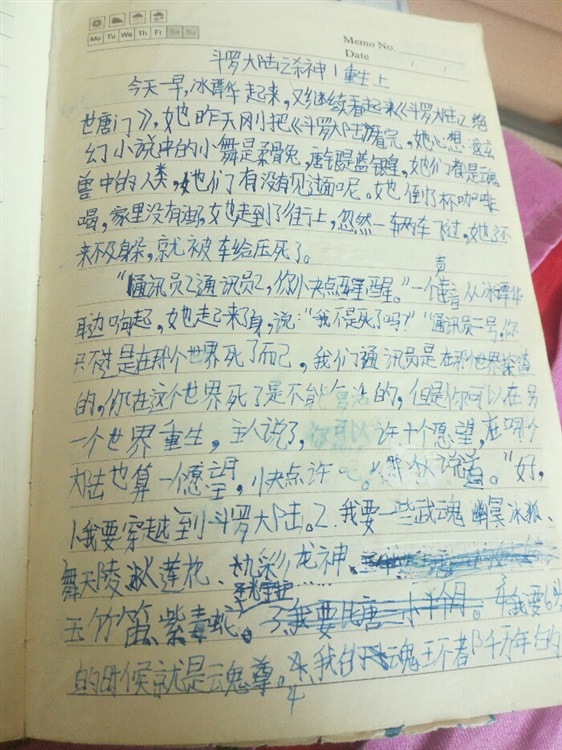 Mo Tu We Th Fr Sa Su
Memo No.
Date / /
斗罗大陆之杀神1重生上
今天一早,冰 华起来,又继续看起来《斗罗大陆2绝
世唐门》,她昨天刚把《斗罗大陆》看完,她心想:玄
幻小说中的小舞是柔骨兔,唐 是蓝银皇,她们都是魂
兽中的人类,她们有没有见过面呢。她倒了杯咖啡
喝,家里没有油,她走到了街上,忽然一辆车飞过,她还
来不及躲,就被车给压死了。
“通讯员2通讯员2,你小快点醒醒。”一个声音从冰 华
耳边响起,她走起来了身,说:“我不是死了吗?”“通讯员二号,你
只不是在那个世界死了而已,我们通讯员是在那个世界
的,你在这个世界死了是不能复活的,但是你可以在另
一个世界重生,主人说了,你可以许十个愿望,在哪个
大陆也算一个愿望,小快点许 。”“好,
1.我要穿越到斗罗大陆。2.我要一些武魂 幽冥冰狐、
舞天陵冰莲花、九彩龙神、
玉竹笛、紫毒蛇。3.我要比唐三小半个月。 我要6岁
的时候就是魂尊。4.我的魂王不者阡万年的